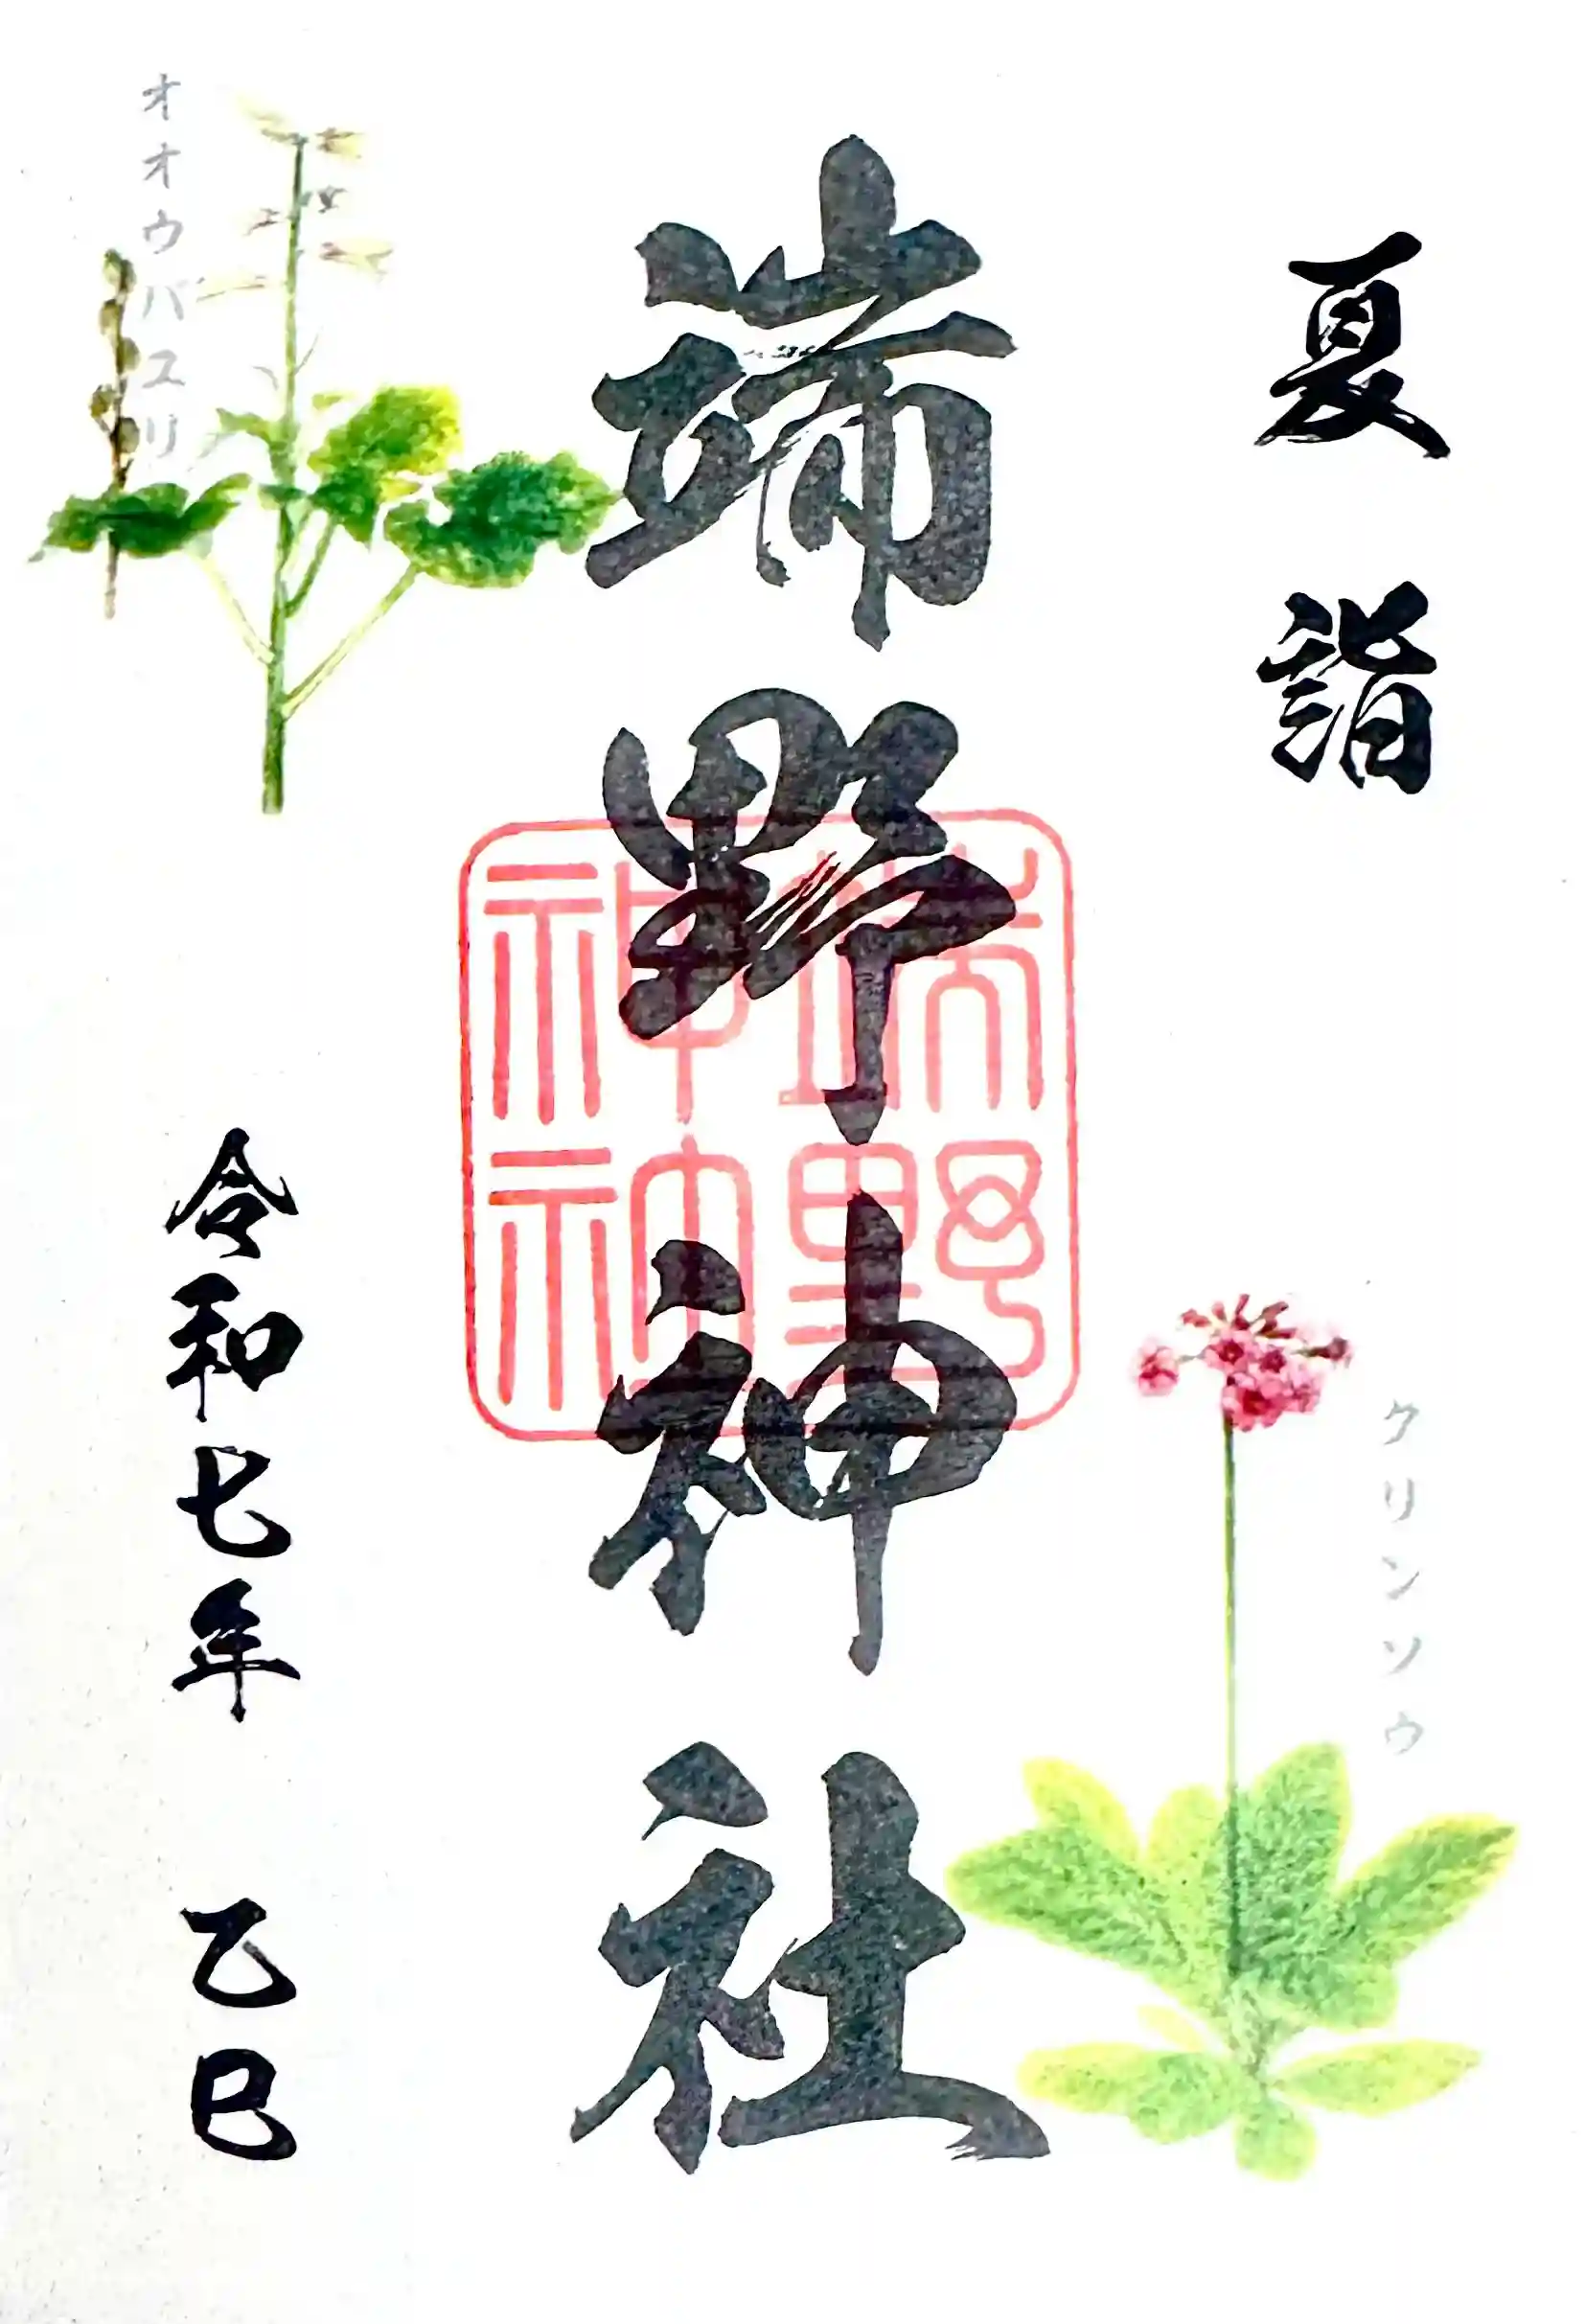 夏詣
クリンソウ
端野神社
端野神社
オオウバユリ
令和七年 乙巳